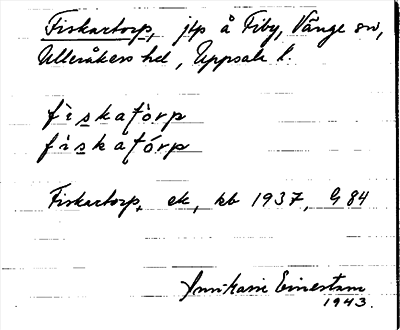 Fiskartorp, jtp å Fiby, Vänge sn,
Ulleråkers hd, Uppsala l.
fìskatòrp
fìskatórp
Fiskartorp, ek, kb 1937, G 84
Einerstam
1943.